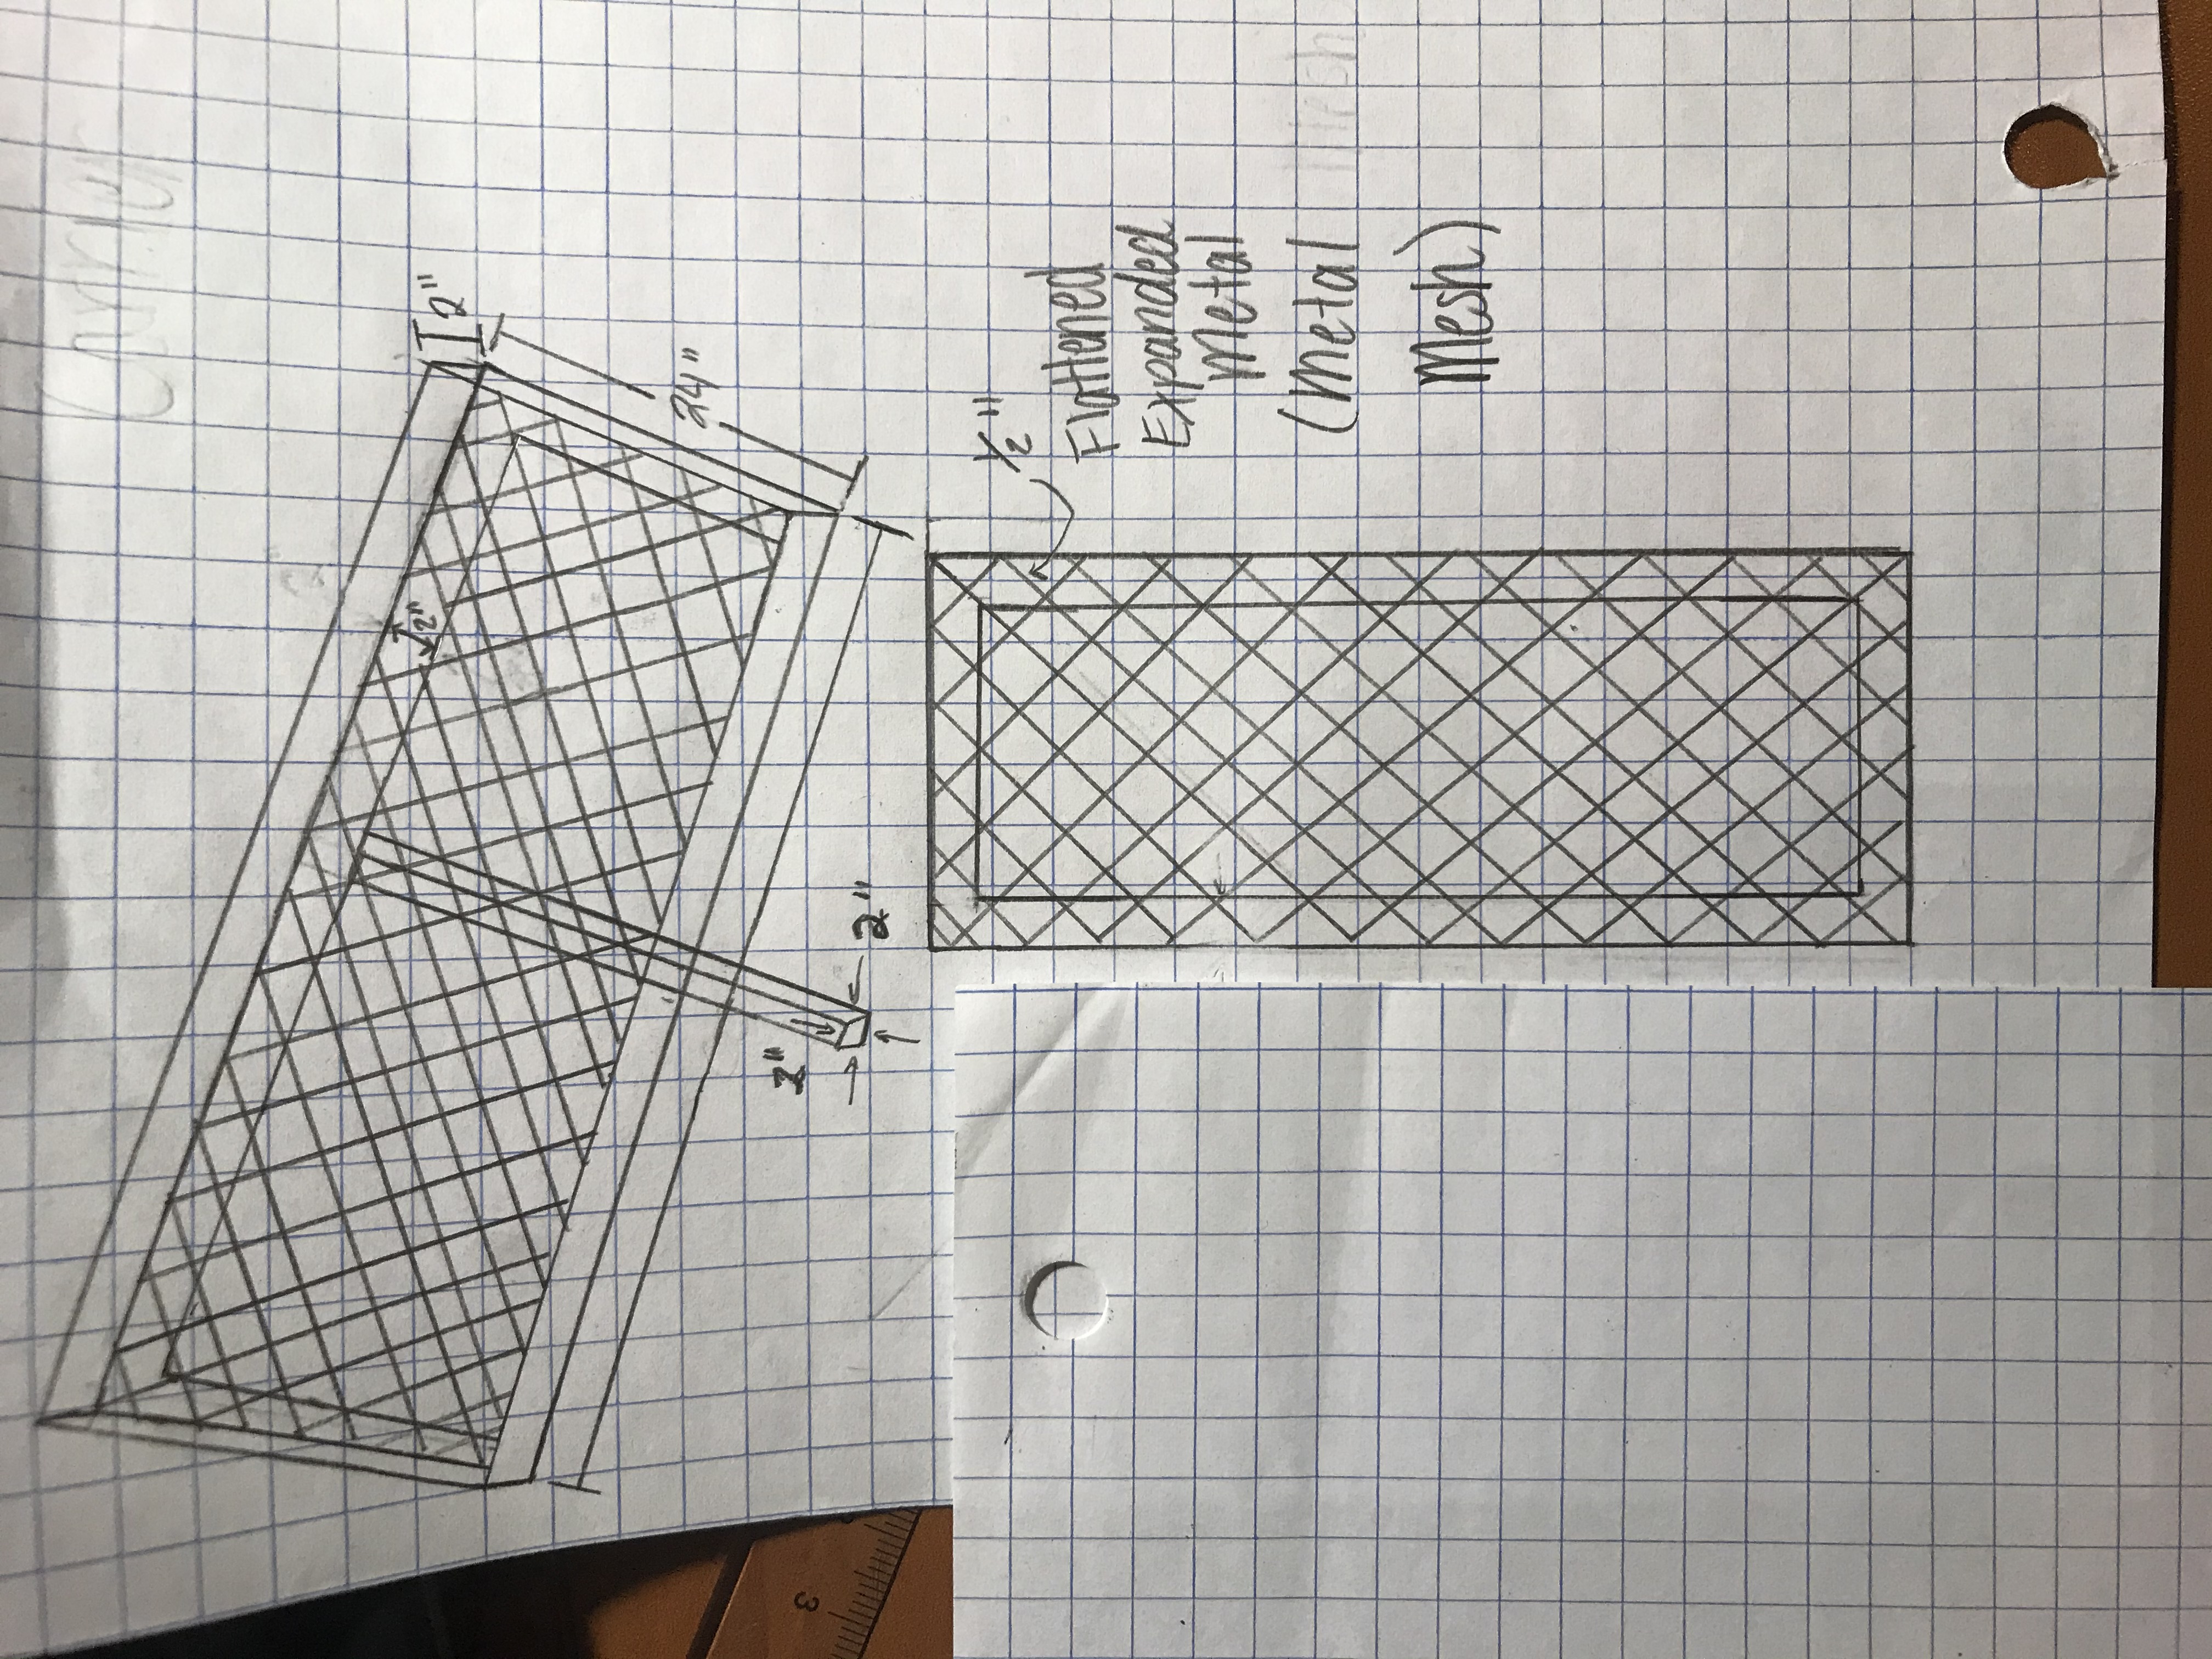 Carrier
2"
2"
24"
2"
2"
1/2"
Flattened
Expanded
Metal
(Metal Mesh
Mesh)
3